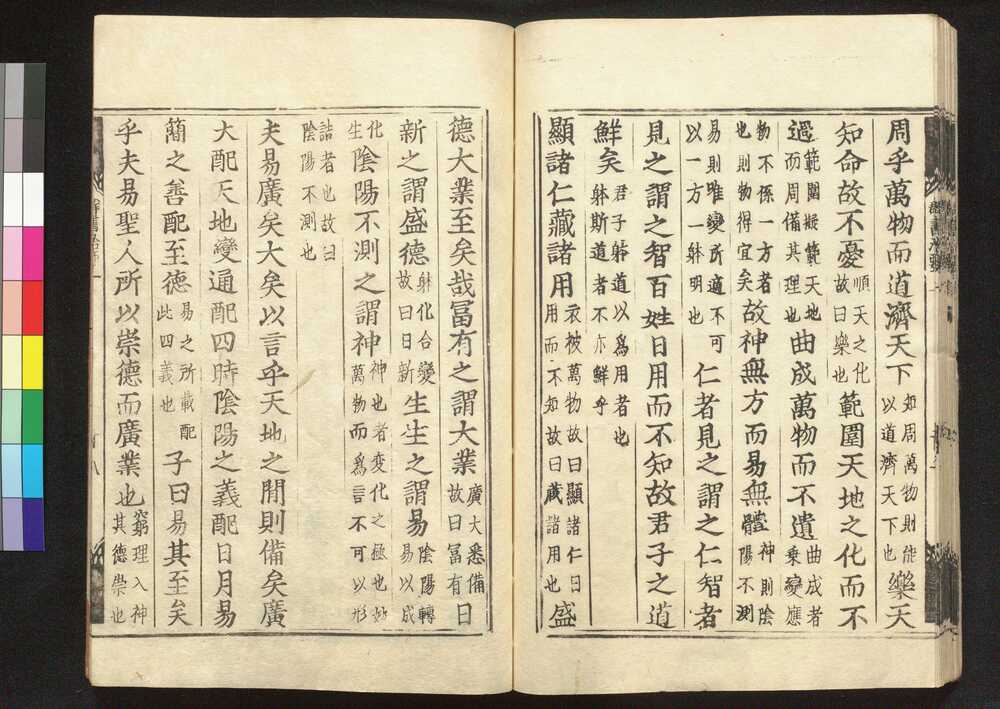 周乎萬物而道濟天下知周萬物則能以道濟天下也樂天
知命故不憂順天之化故曰樂也範圍天地之化而不
過範圍擬範天地而周備其理也曲成萬物而不遺曲成者乘變應
物不係一方者也則物得宜矣故神無方而易無體神則陰陽不測
易則唯變所適不可以一方一躰明也仁者見之謂之仁智者
見之謂之智百姓日用而不知故君子之道
鮮矣君子躰道以爲用者也躰斯道者不亦鮮乎
顯諸仁藏諸用衣被萬物故曰顯諸仁日用而不知故曰藏諸用也盛
德大業至矣哉冨有之謂大業廣大悉備故曰冨有日
新之謂盛德躰化合變故曰日新生生之謂易陰陽轉易以成
化生陰陽不測之謂神神也者変化之極也妙萬物而爲言不可以形
詰者也故曰陰陽不測也
夫易廣矣大矣以言乎天地之間則備矣廣
大配天地變通配四時陰陽之義配日月易
簡之善配至德易之所載配此四義也子曰易其至矣
乎夫易聖人所以崇德而廣業也窮理入神其德崇也